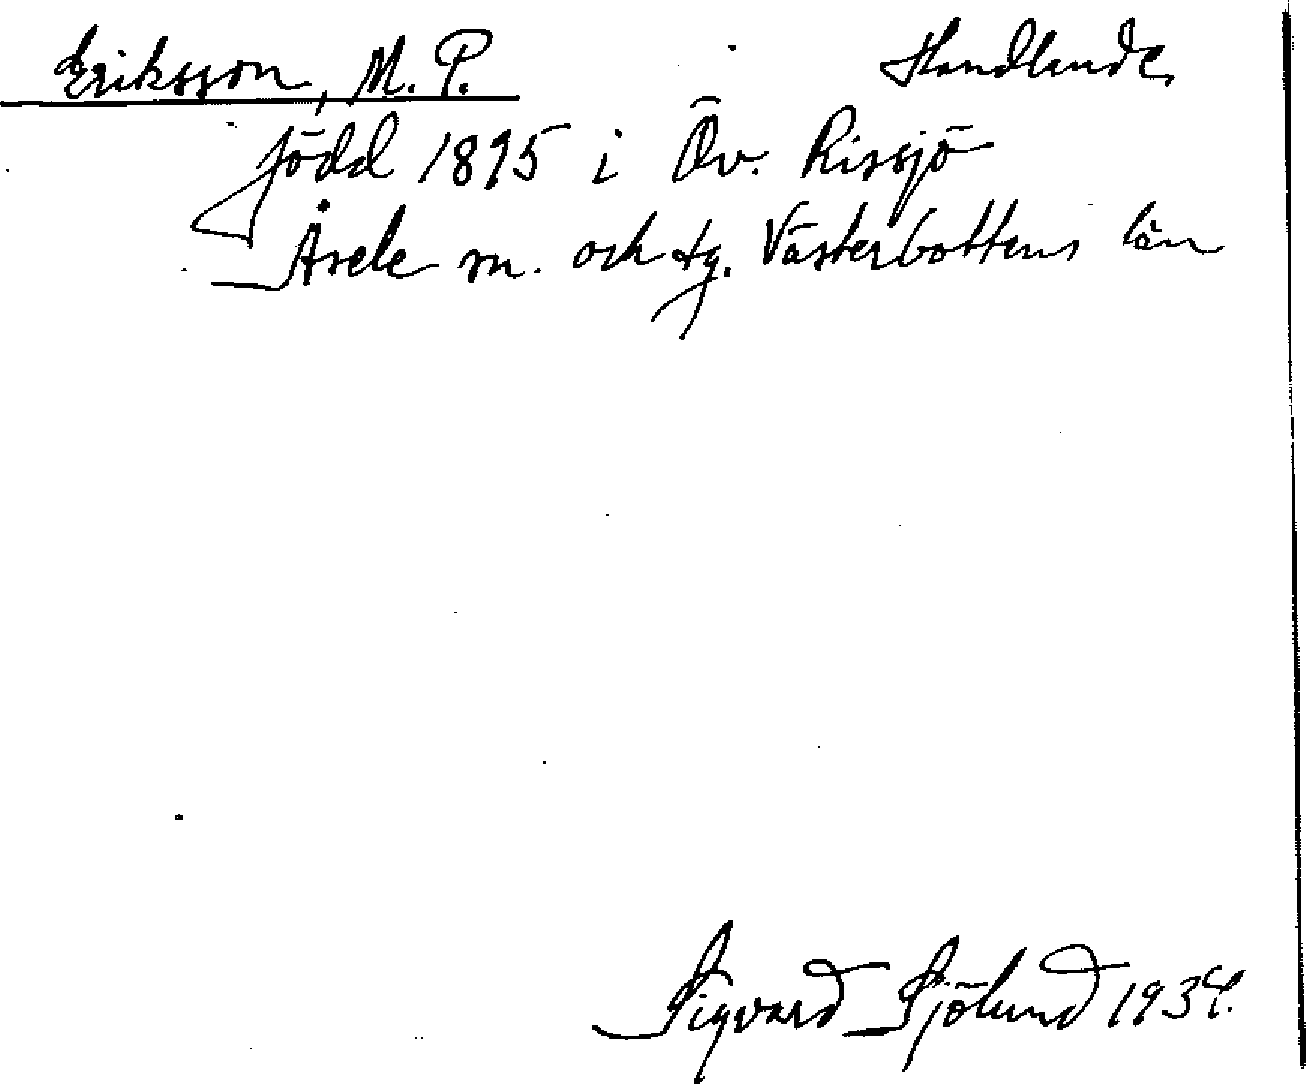 Eriksson, M. P. Handlande,
född 1895 i Öv. Rissjö
Åsele sn. och tg. Västerbottens län
Sigvard Sjölund 1934.